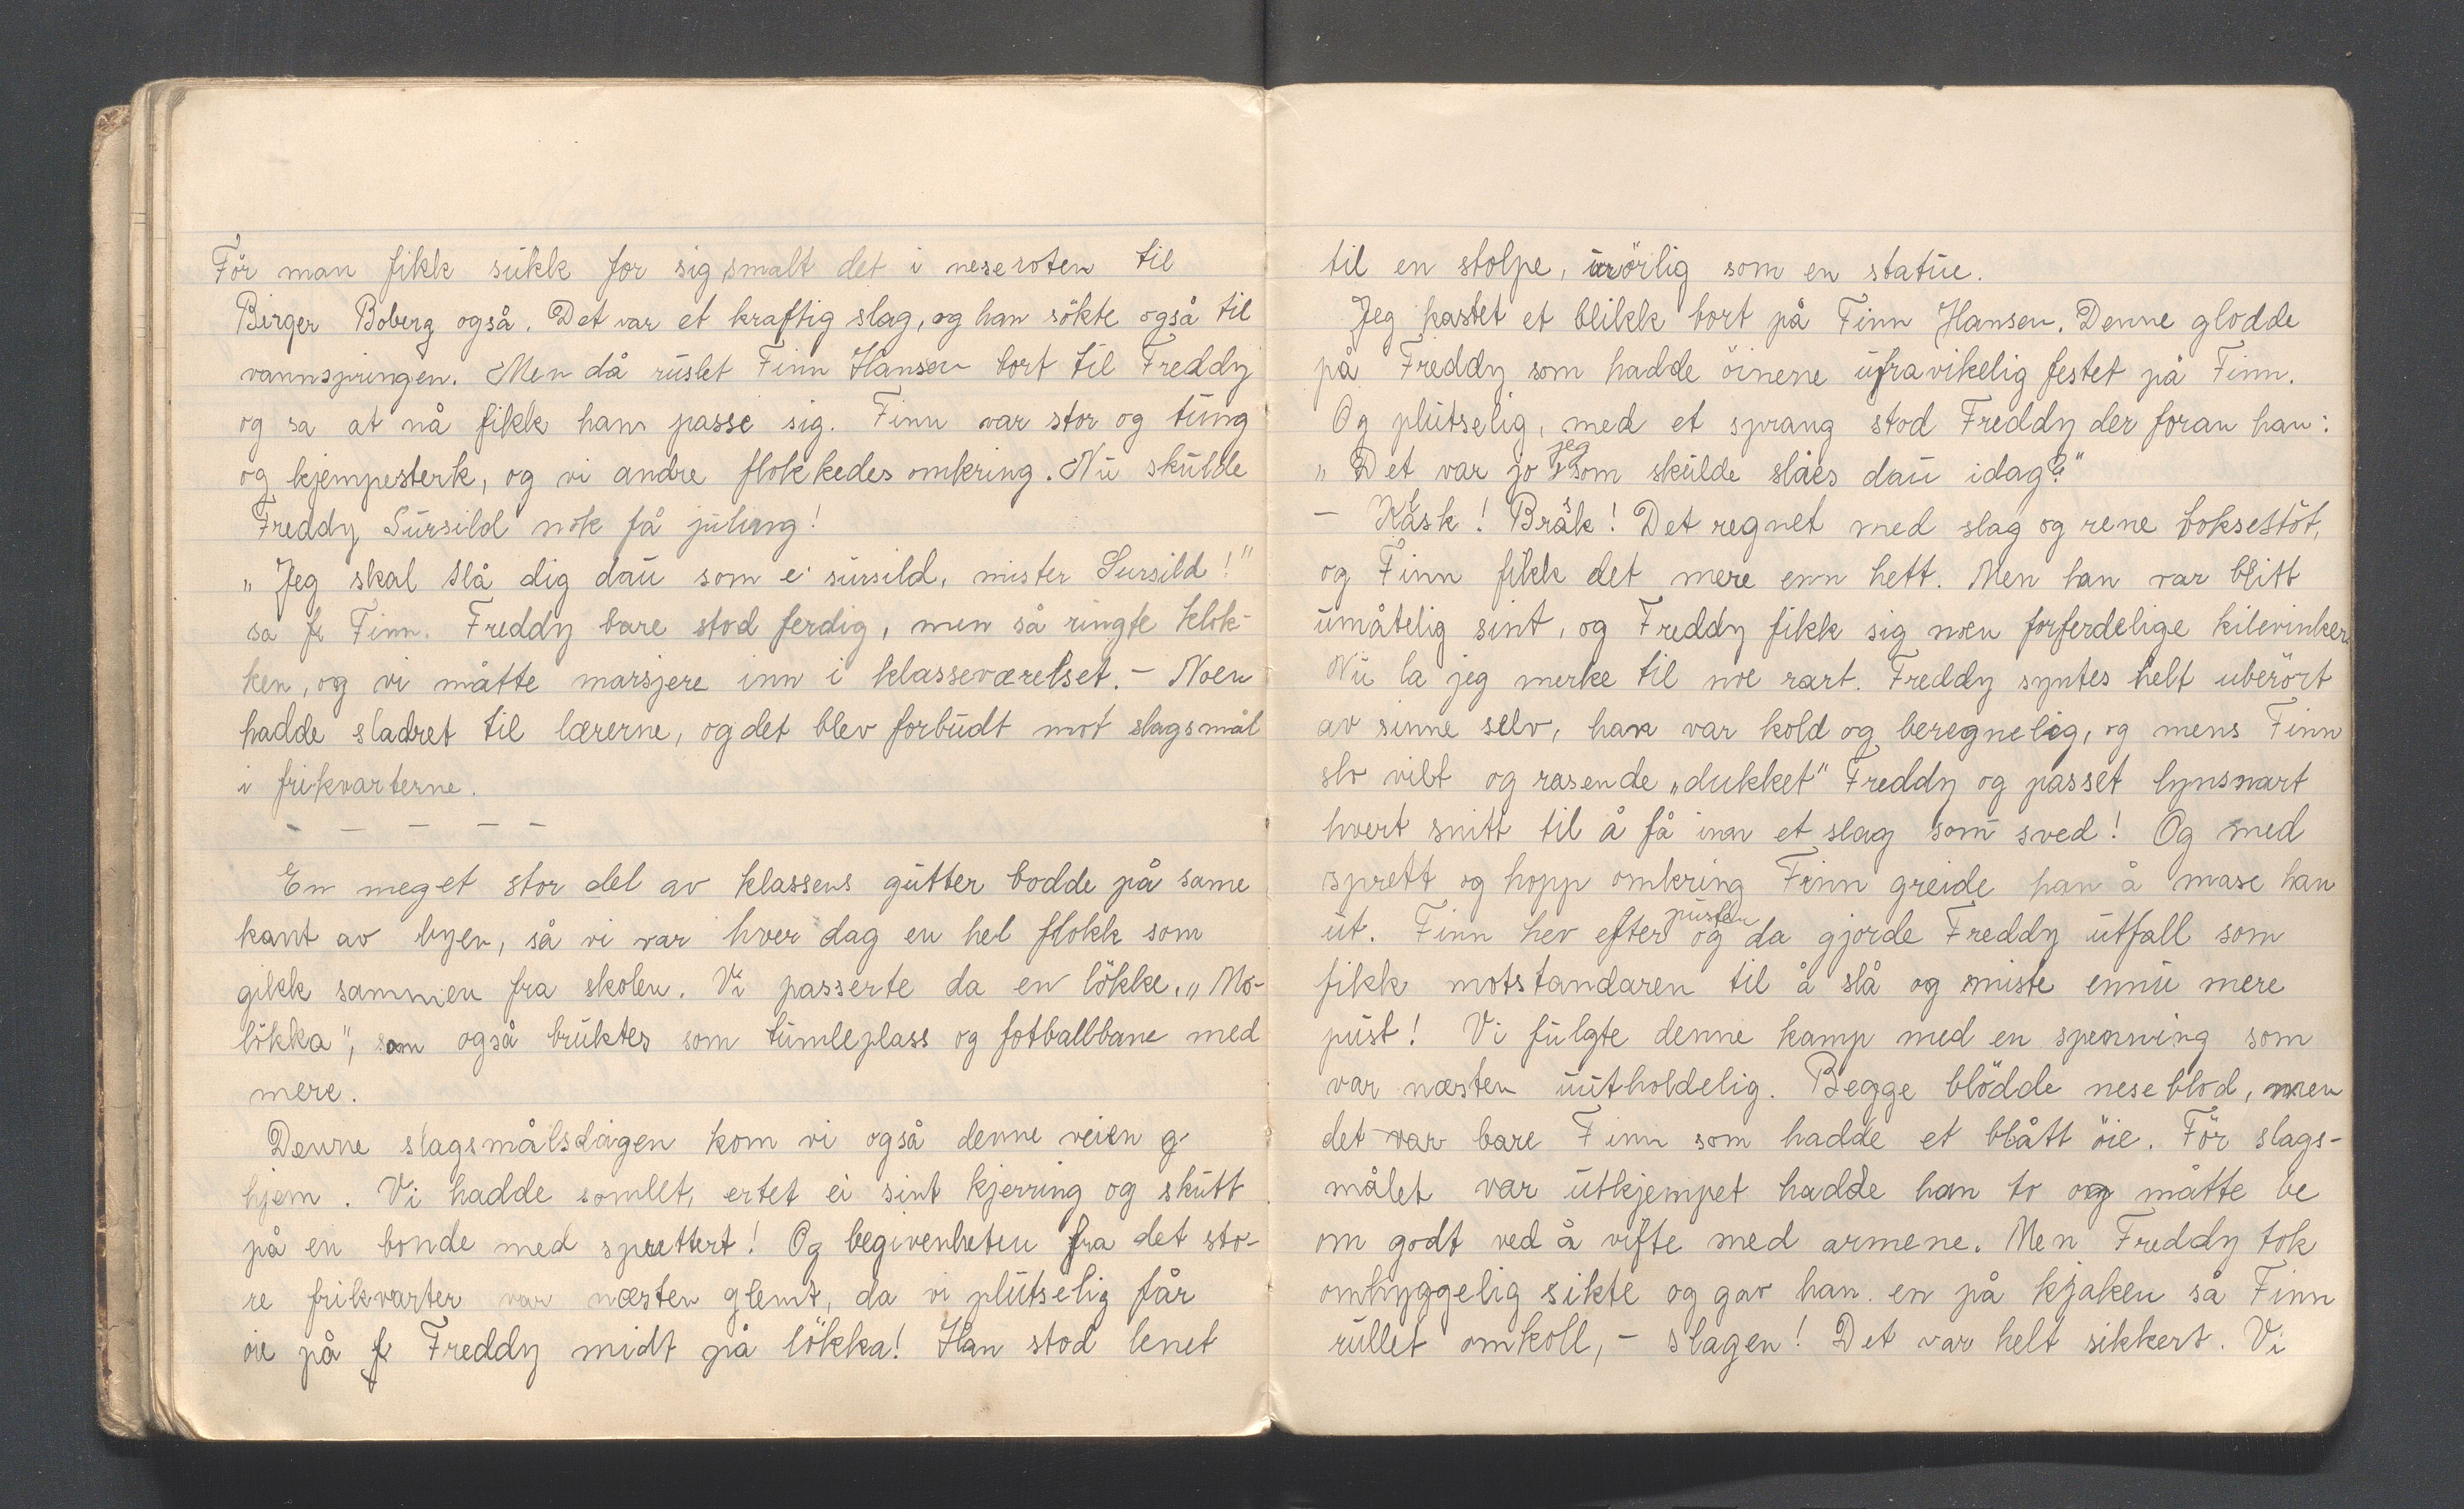 Før man fikk sukk for sig, smalt det i neseroten til
Birger Boberg også. Det var et kraftig slag, og han søkte også til
vannspringen. Men då ruslet Finn Hansen bort til Freddy
og sa at nå fikk han passe sig. Finn var stor og tung
og kjempesterk, og vi andre flokkedes omkring. Nu skulde
Freddy Sursild nok få juling!
„Jeg skal slå dig dau som ei sursild, mister Sursild!"
sa Finn. Freddy bare stod ferdig, men så ringte klok-
ken, og vi måtte marsjere inn i klasseværelset. – Noen
hadde sladret til lærerne, og det blev forbudt mot slagsmål
i frikvarterne.
– – – – –
En meget stor del av klassens gutter bodde på same
kant av byen, så vi var hver dag en hel flokk som
gikk sammen fra skolen. Vi passerte da en løkke, „Mo-
løkka", som også bruktes som tumleplass og fotballbane med
mere.
Denne slagsmålsdagen kom vi også denne veien
hjem. Vi hadde somlet, ertet ei sint kjerring og skutt
på en bonde med sprettert! Og begivenheten fra det sto-
re frikvarter var næsten glemt, da vi plutselig får
øie på Freddy midt på løkka! Han stod lenet
til en stolpe, urørlig som en statue.
Jeg kastet et blikk bort på Finn Hansen. Denne glodde
på Freddy som hadde øinene ufravikelig festet på Finn.
Og plutselig, med et sprang stod Freddy der foran han:
„Det var jo jeg som skulde slåes dau idag?"
– Kask! Bråk! Det regnet med slag og rene boksestøt,
og Finn fikk det mere enn hett. Men han var blitt
umåtelig sint, og Freddy fikk sig noen forferdelige kilevinker.
Nu la jeg merke til noe rart. Freddy syntes helt uberørt
av sinne selv, han var kold og beregnelig, og mens Finn
slo vilt og rasende „dukket" Freddy og passet lynsnart
hvert snitt til å få inn et slag som sved! Og med
sprett og hopp omkring Finn greide han å mase han
ut. Finn hev efter pusten og da gjorde Freddy utfall som
fikk motstandaren til å slå og miste ennu mere
pust! Vi fulgte denne kamp med en spenning som
var næsten uutholdelig. Begge blødde neseblod, men
det var bare Finn som hadde et blått øie. Før slags-
målet var utkjempet hadde han to og måtte be
om godt ved å vifte med armene. Men Freddy tok
omhyggelig sikte og gav han en på kjaken så Finn
rullet omkoll, – slagen! Det var helt sikkert. Vi